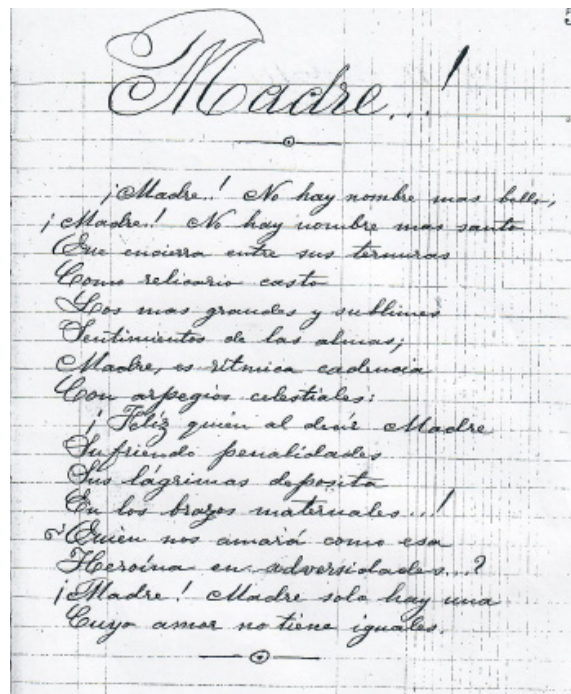 Madre...!
¡Madre..! No hay nombre mas bello,
¡Madre..! No hay nombre mas santo
Que encierra entre sus ternuras
Como relicario casto
Los mas grandes y sublimes
Sentimientos de las almas;
Madre, es rítmica cadencia
Con arpegios celestiales:
¡Feliz quien al decir Madre
Sufriendo penalidades
Sus lágrimas deposita
En los brazos maternales...!
¿Quien nos amará como esa
Heroína en adversidades...?
¡Madre! Madre solo hay una
Cuyo amor no tiene iguales.